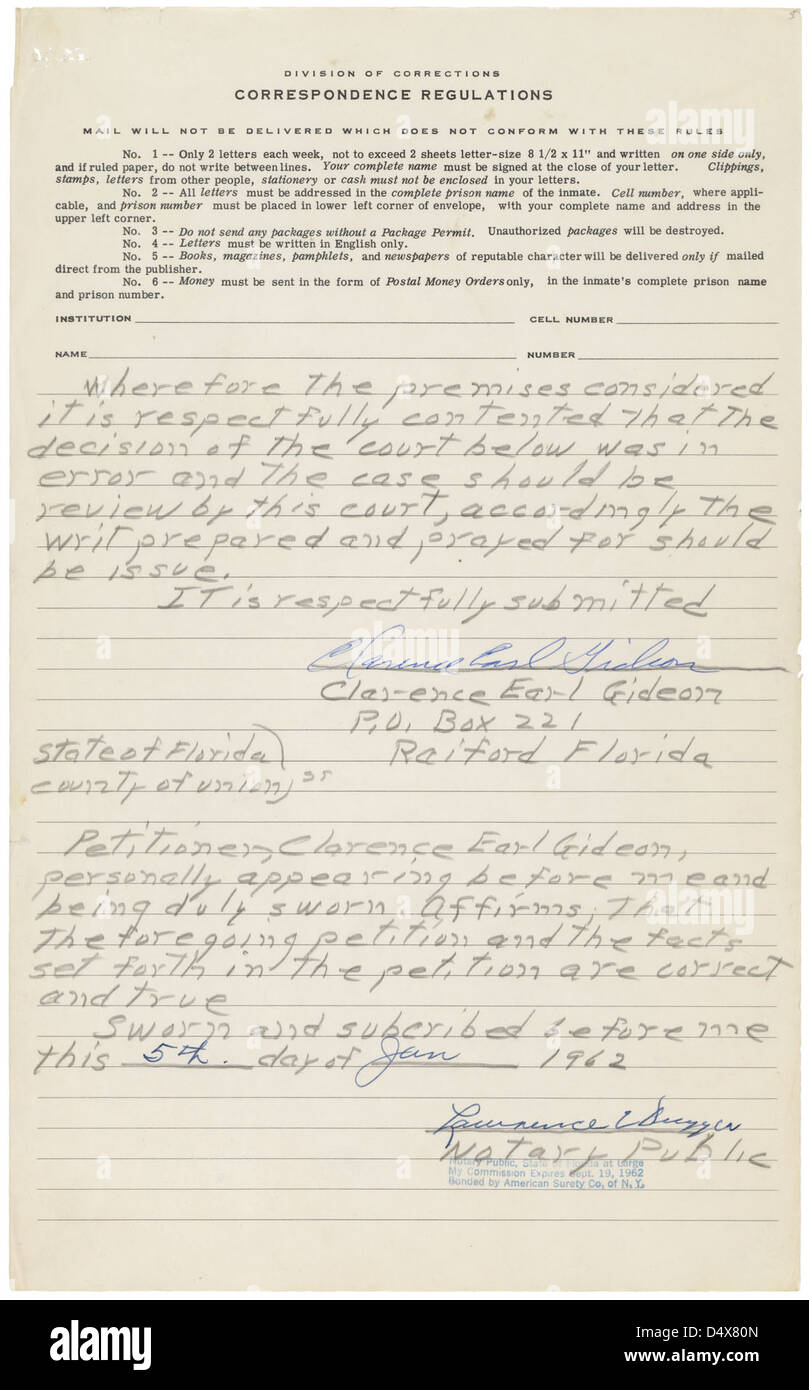 5
DIVISION OF CORRECTIONS
CORRESPONDENCE REGULATIONS
MAIL WILL NOT BE DELIVERED WHICH DOES NOT CONFORM WITH THESE RULES
No. 1 -- Only 2 letters each week, not to exceed 2 sheets letter-size 8 1/2 x 11" and written on one side only,
and if ruled paper, do not write between lines. Your complete name must be signed at the close of your letter. Clippings,
stamps, letters from other people, stationery or cash must not be enclosed in your letters.
No. 2 -- All letters must be addressed in the complete prison name of the inmate. Cell number, where appli-
cable, and prison number must be placed in lower left corner of envelope, with your complete name and address in the
upper left corner.
No. 3 -- Do not send any packages without a Package Permit. Unauthorized packages will be destroyed.
No. 4 -- Letters must be written in English only.
No. 5 -- Books, magazines, pamphlets, and newspapers of reputable character will be delivered only if mailed
direct from the publisher.
No. 6 -- Money must be sent in the form of Postal Money Orders only, in the inmate's complete prison name
and prison number.
INSTITUTION CELL NUMBER
NAME NUMBER
Wherefore the premises considered
it is respectfully contented that the
decision of the court below was in
error and the case should be
review by this court, accordingly the
writ prepared and prayed for should
be issue.
It is respectfully submitted
Clarence Earl Gideon
Clarence Earl Gideon
P.O. Box 221
State of Florida) Raiford Florida
county of union, ss
Petitioner, Clarence Earl Gideon,
personally appearing before me and
being duly sworn, Affirms, that
the foregoing petition and the facts
set forth in the petition are correct
and true
Sworn and subcribed before me
this 5th. day of Jan 1962
Lawrence Dugger
Notary Public
Notary Public, State of Florida at Large
My Commission Expires Sept. 19, 1962
Bonded by American Surety Co. of N. Y.
alamy
Image ID: D4X80N
www.alamy.com